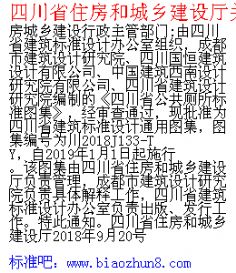 四川省住房和城乡建设厅关
房城乡建设行政主管部门:由四川
省建筑标准设计办公室组织，成都
市建筑设计研究院、四川国恒建筑
设计有限公司、中国建筑西南设计
研究院有限公司、四川省建筑设计
研究院编制的《四川省公共厕所标
准图集》，经审查通过，现批准为
四川省建筑标准设计通用图集，图
集编号为川2018J133-T
Y，自2019年1月1日起施行
。该图集由四川省住房和城乡建设
厅负责管理，成都市建筑设计研究
院负责具体解释工作，四川省建筑
标准设计办公室负责出版、发行工
作。特此通知。四川省住房和城乡
建设厅2018年9月20号
标准吧：www.biaozhun8.com